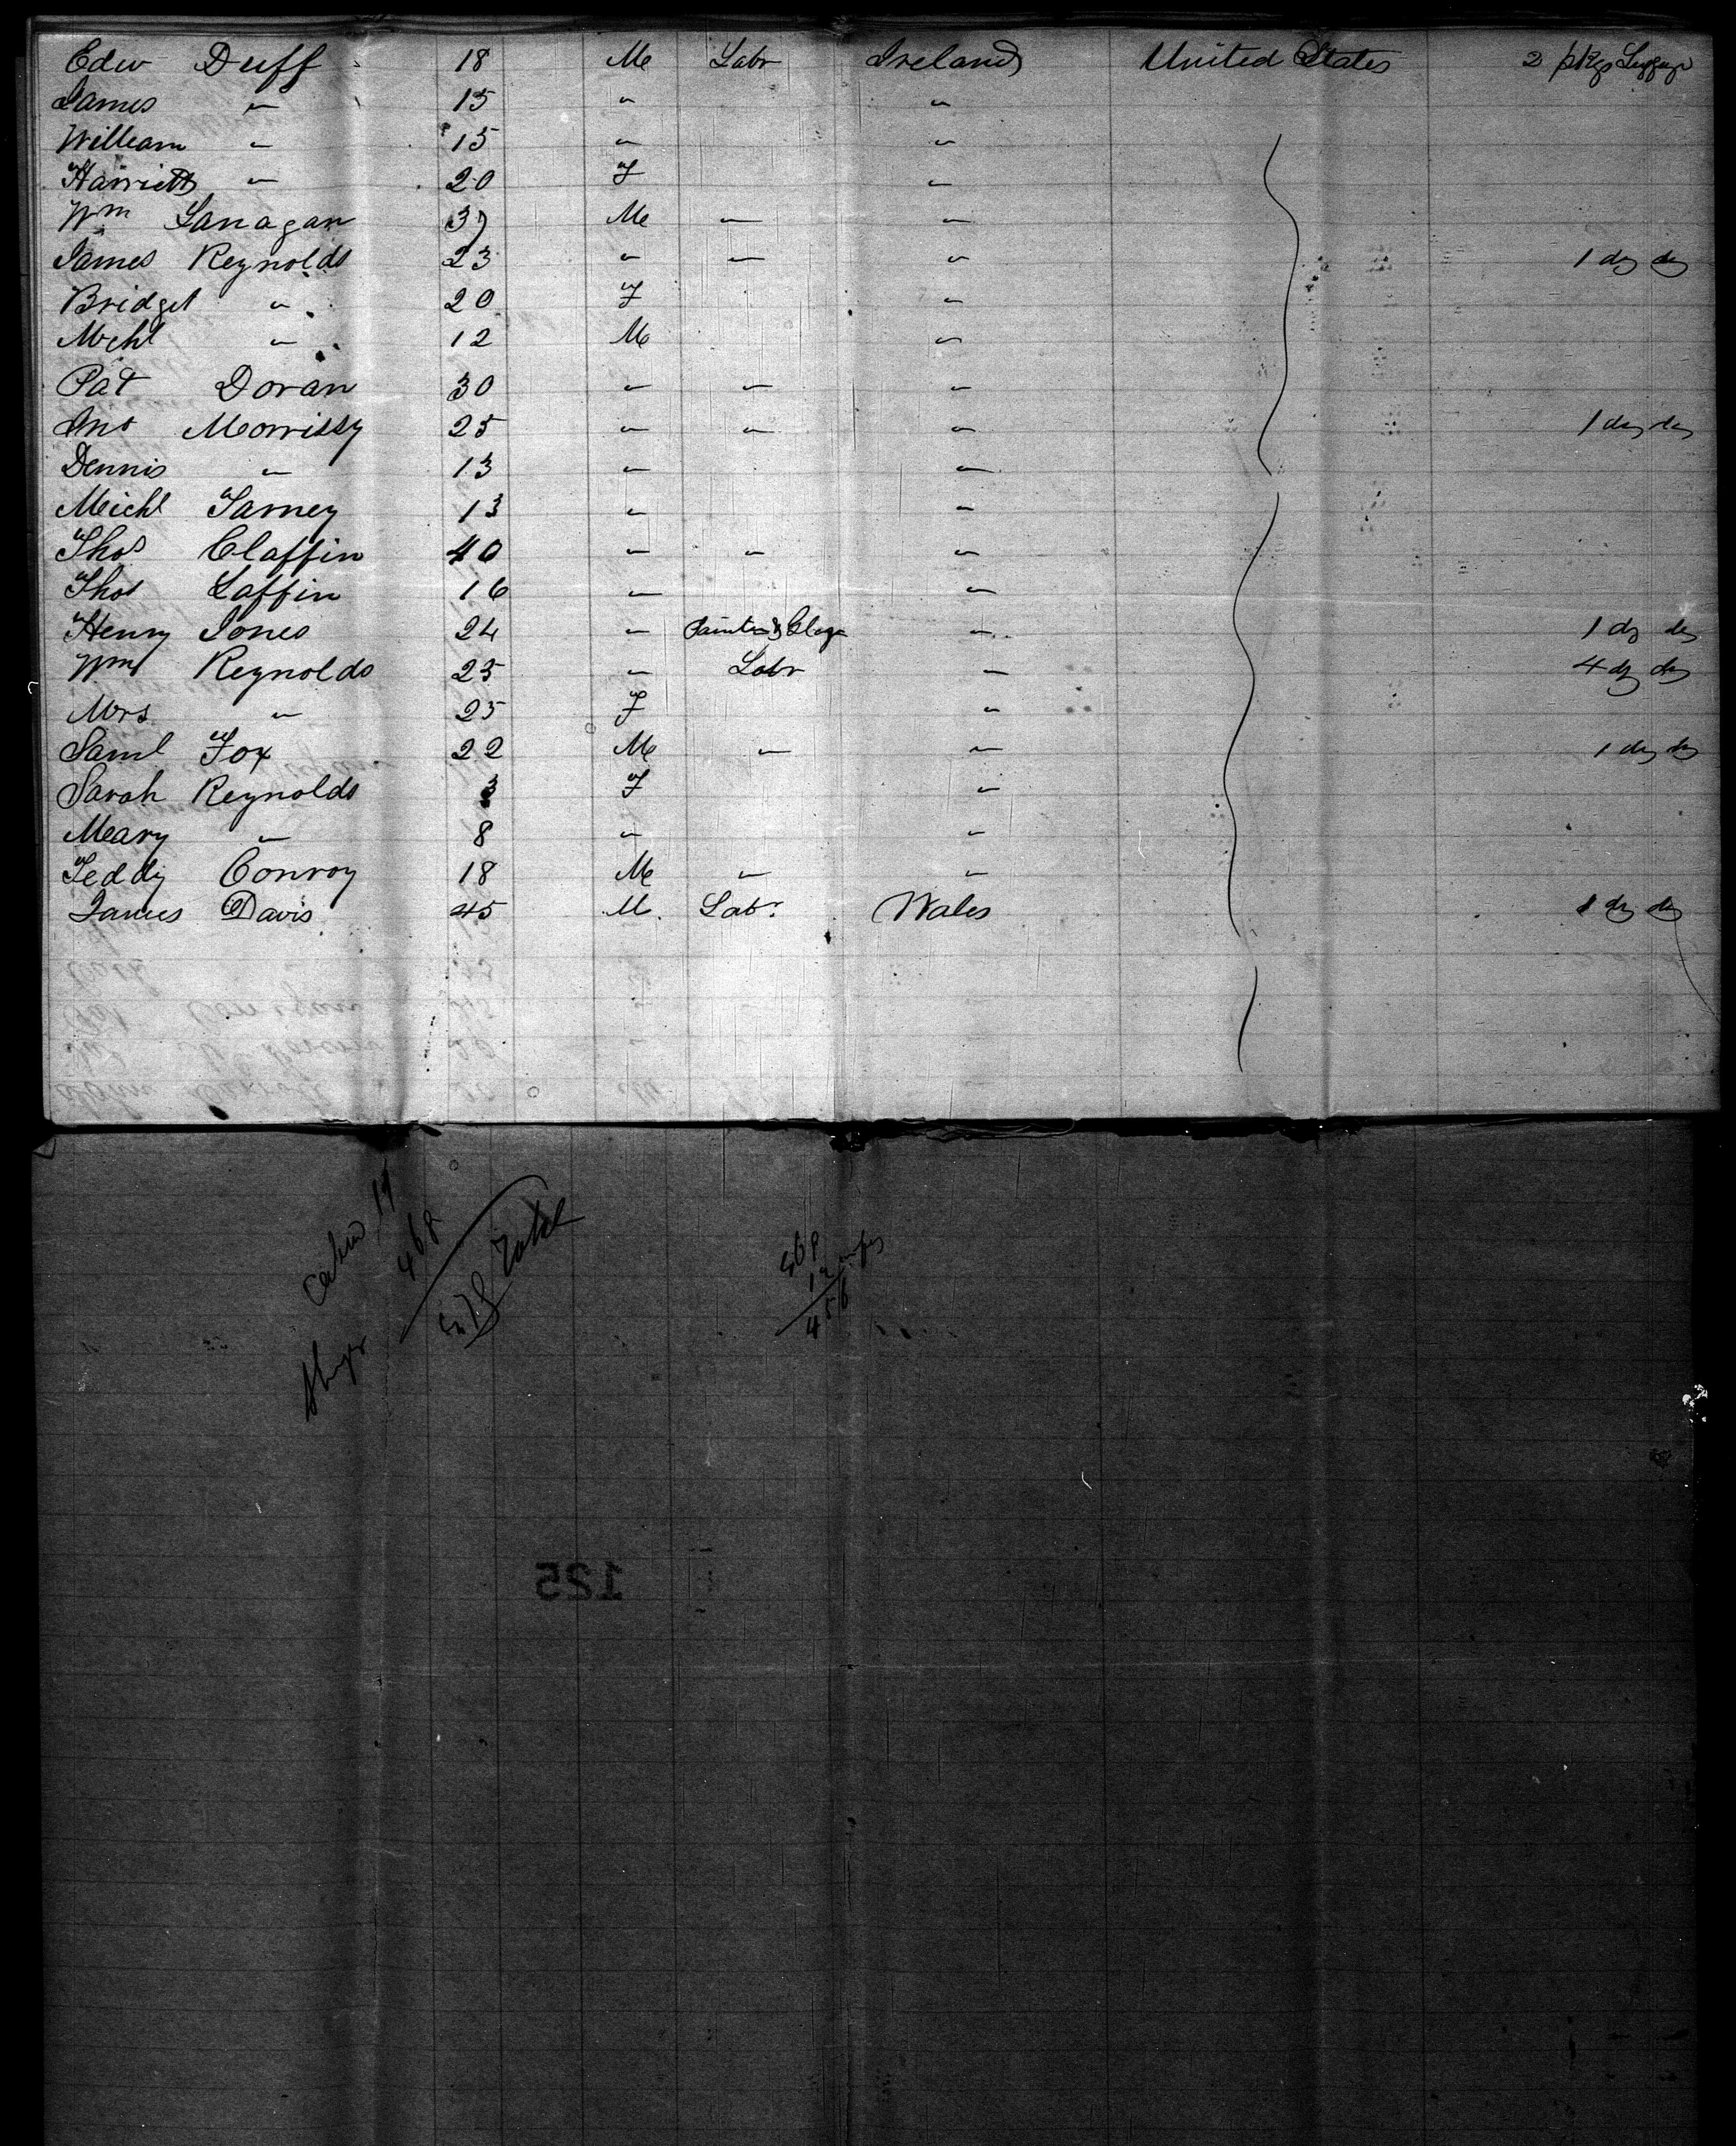 Edw Duff 18 M Labr Ireland United States 2 pkgs Luggage
James " 15 " "
William " 15 " "
Harriett " 20 F "
Wm Lanagan 37 M " "
James Reynolds 23 " " " 1 do do
Bridget " 20 F "
Mchl " 12 M "
Pat Doran 30 " " "
Jno Morrissy 25 " " " 1 do do
Dennis " 13 " "
Michl Tarney 13 " "
Thos Claffin 40 " " "
Thos Laffin 16 " "
Henry Jones 24 " Painter & Glazr " 1 do do
Wm Reynolds 25 " Labr " 4 do do
Mrs " 25 F "
Saml Fox 22 M " " 1 do do
Sarah Reynolds 3 F "
Meary " 8 " "
Teddy Conroy 18 M " "
James Davis 45 M. Labr Wales 1 do do
Cabin 19
468
Total
468
12 infs
456
125